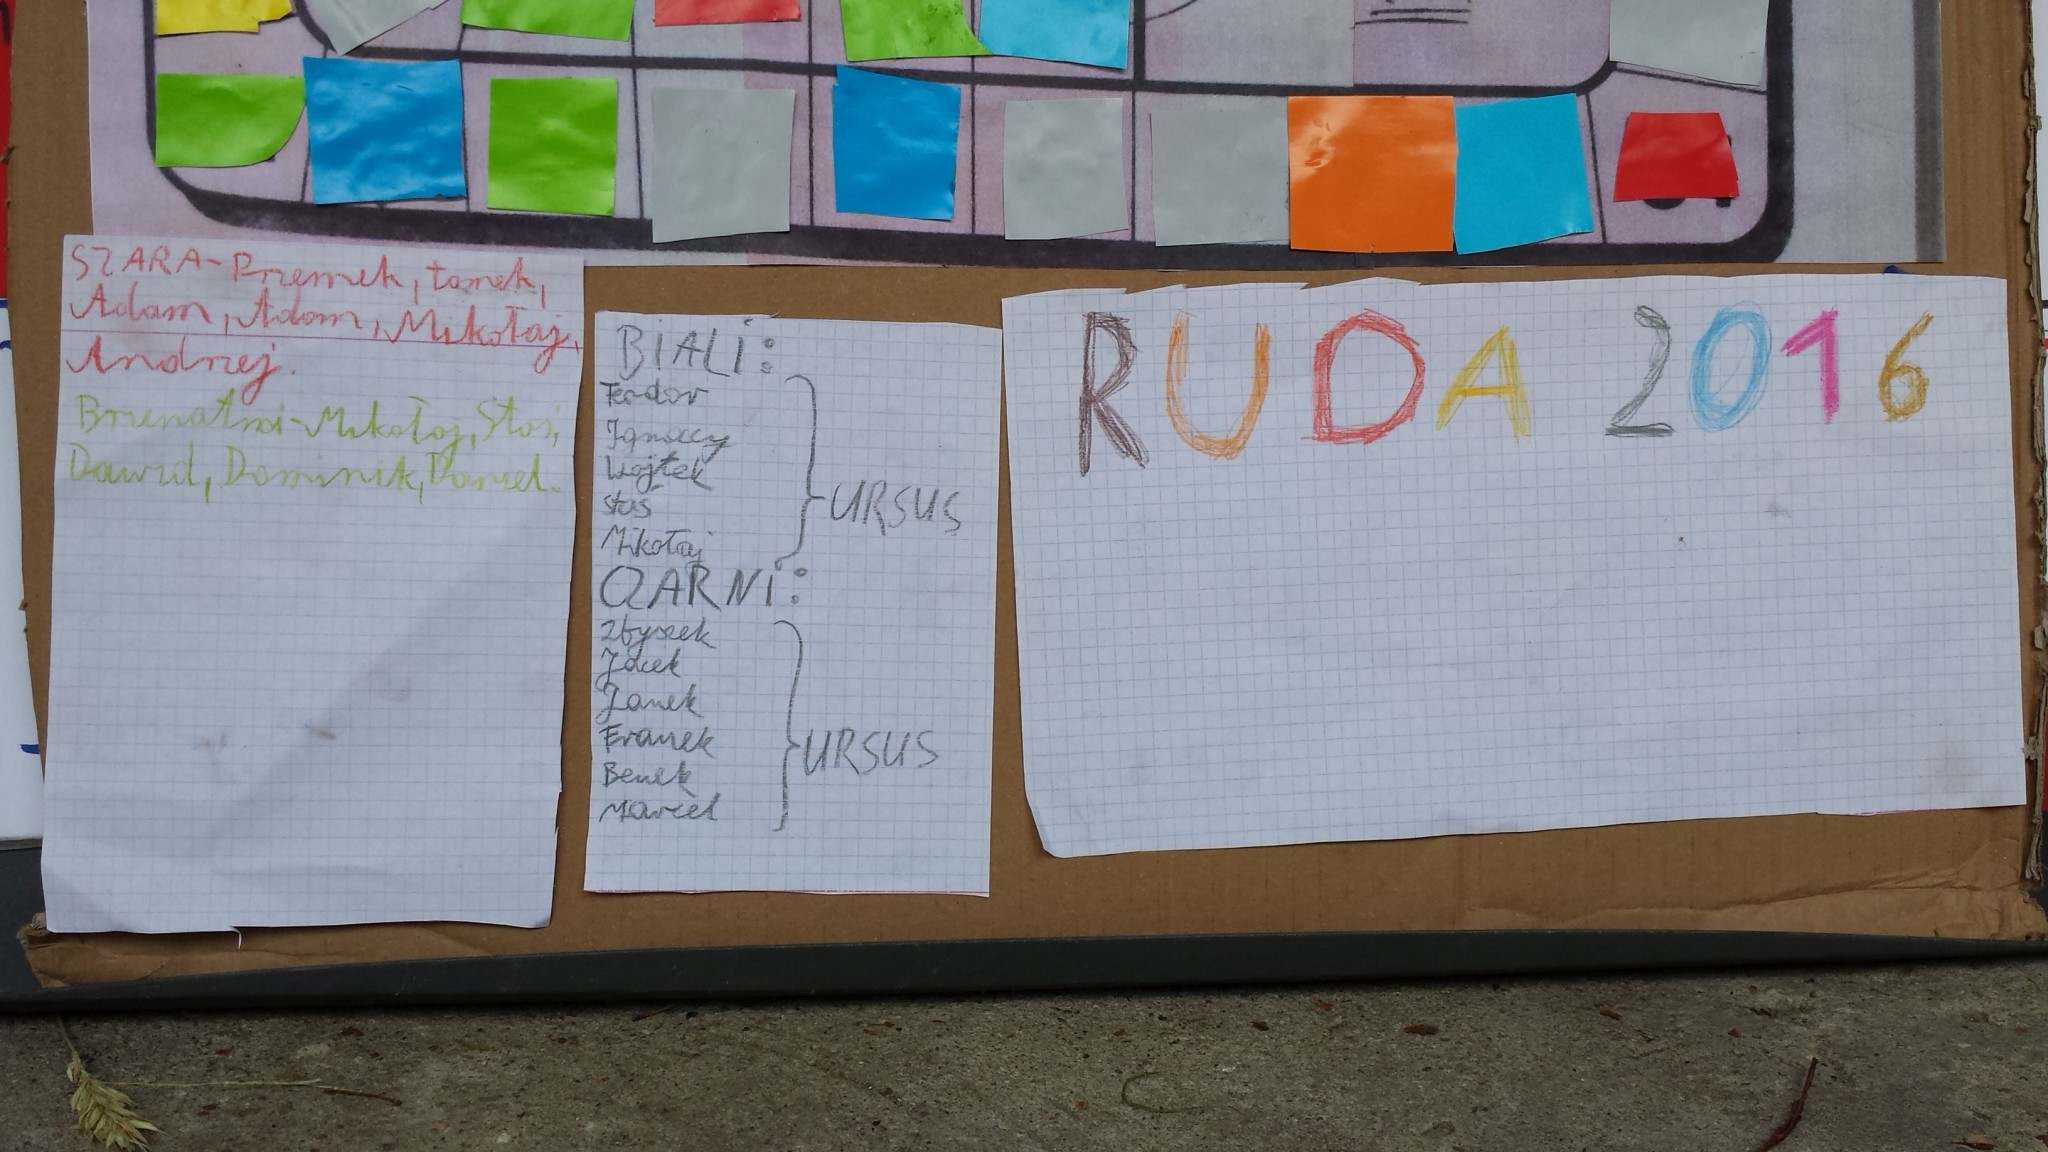 SZARA-Przemek, tomek,
Adam, Adam, Mikołaj,
Andrzej.
Brunatni-Mikołaj, Staś,
Dawid, Dominik, Daniel.
BIALI:
Teodor
Ignacy
Wojtek
Staś
Mikołaj
URSUS
CZARNI:
Zbyszek
Jacek
Janek
Franek
Benek
Marcel
URSUS
RUDA 2016